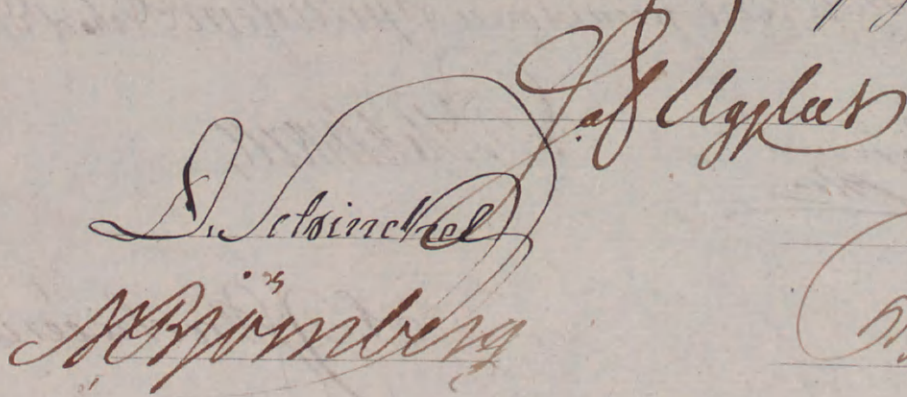 af Ugglas
D. Schinckel
M Björnberg